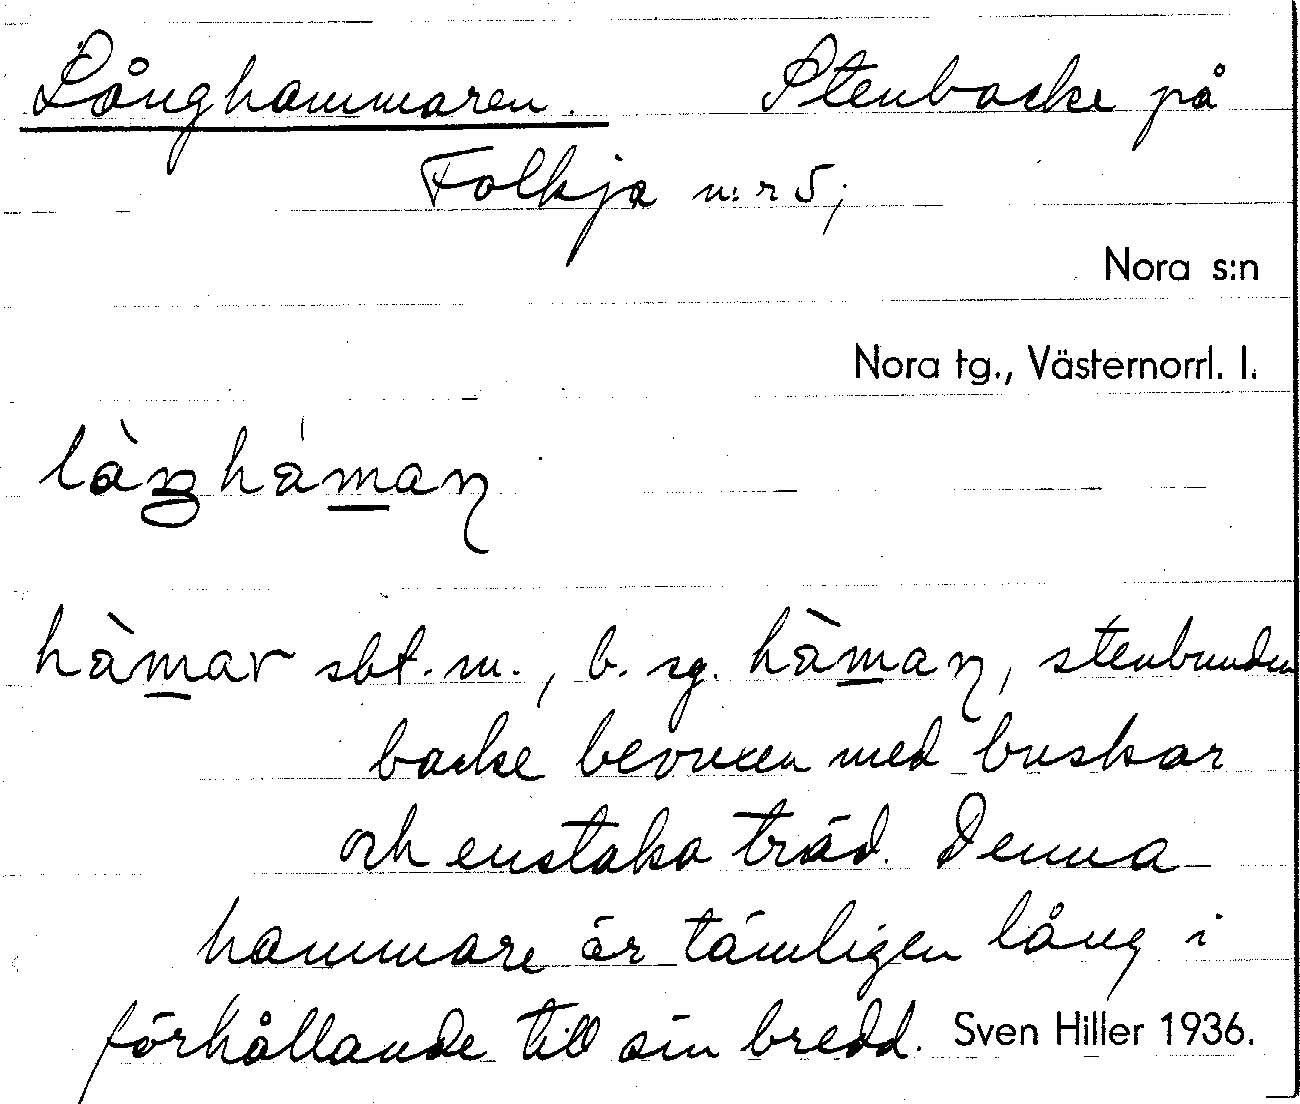 Långhammaren. Stenbacke på
Folkja n:r 5;
Nora s:n
Nora tg., Västernorrl. l.
là̀ŋhámaɳ
hàmar sbt. m., b. sg. hàmaɳ, stenbunden
backe bevuxen med buskar
och enstaka träd. Denna
hammare är tämligen lång i
förhållande till sin bredd. Sven Hiller 1936.